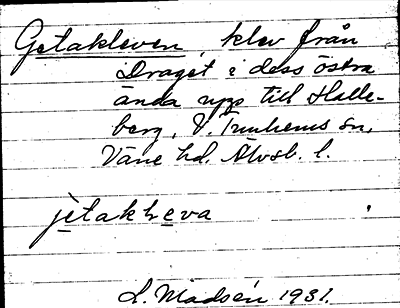 Getakleven, klev från
Draget i dess östra
ända upp till Halle-
berg, V. Tunhems sn,
Väne hd. Älvsb. l.
jetakleva
L. Madsén 1931.